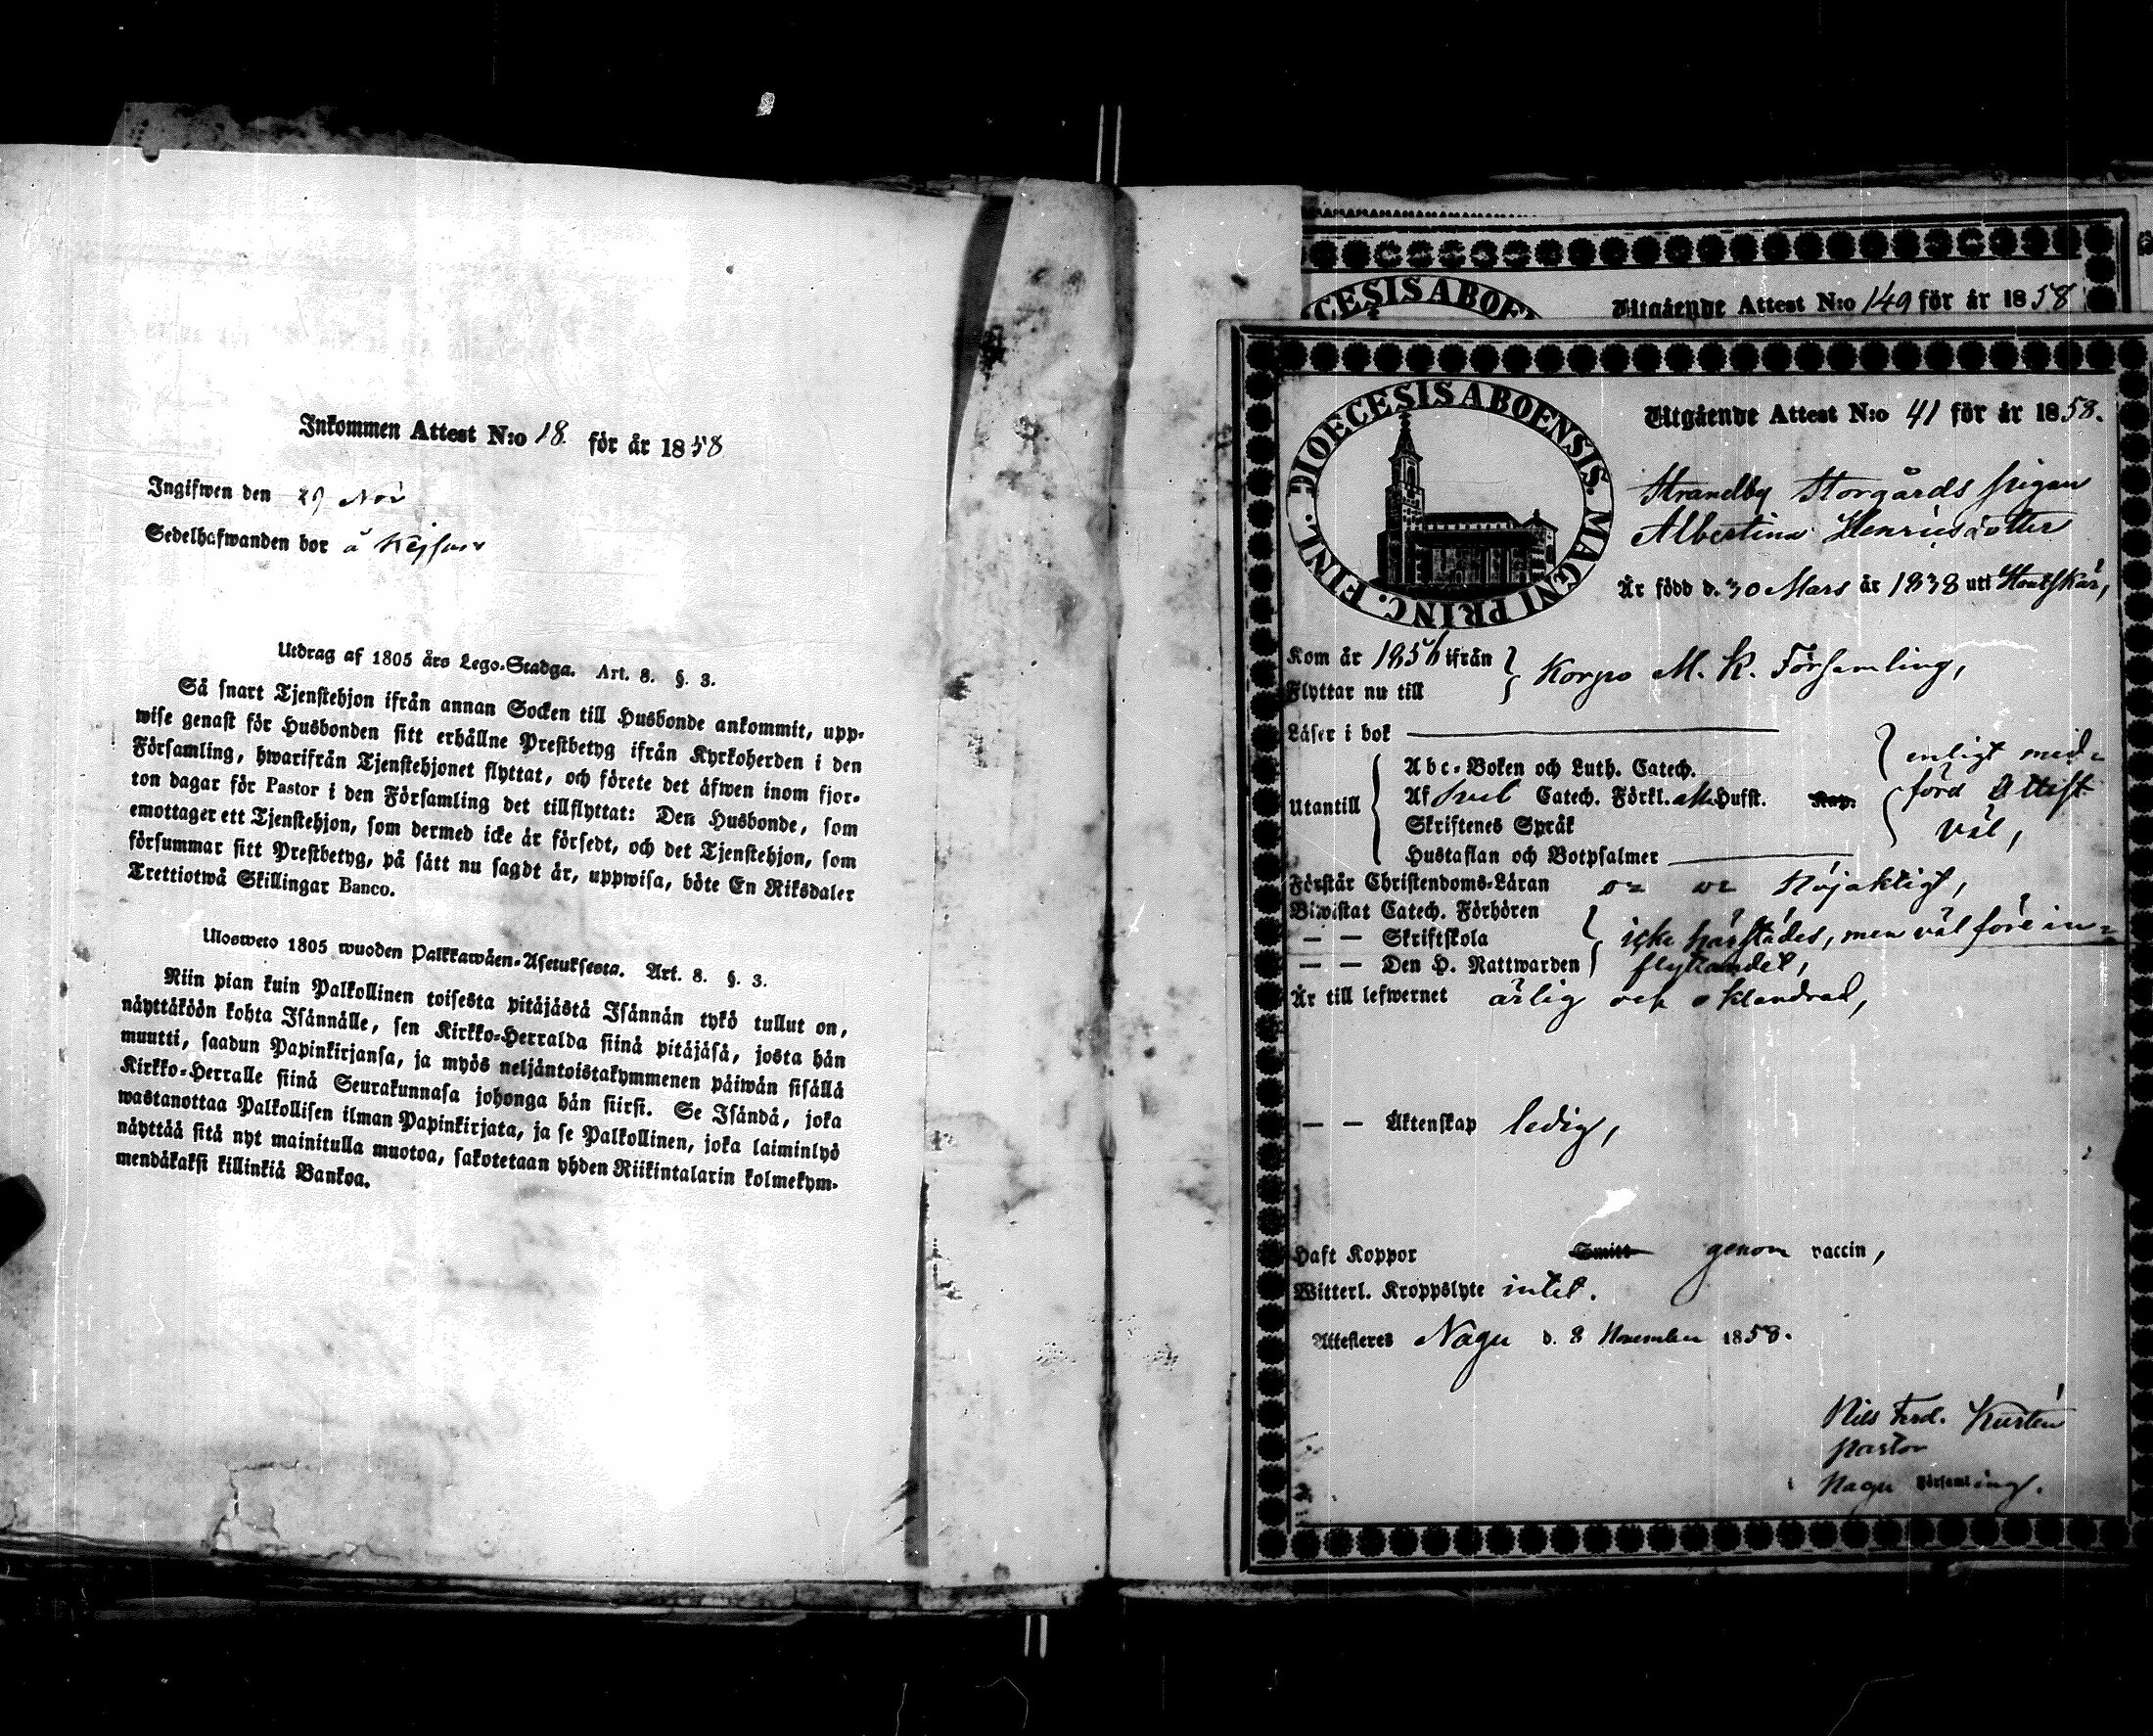 Inkommen Attest N:o 18. för år 1858
Ingifwen den 29 Nov
Sedelhafwanden bor å
Utdrag af 1805 års Lego-Stadga. Art. 8. §. 3.
Så snart Tjenstehjon ifrån annan Socken till Husbonde ankommit, upp-
wise genast för Husbonden sitt erhållne Prestbetyg ifrån Kyrkoherden i den
Församling, hwarifrån Tjenstehjonet flyttat, och förete det äfwen inom fjor-
ton dagar för Pastor i den Församling det tillflyttat: Den Husbonde, som
emottager ett Tjenstehjon, som dermed icke är försedt, och det Tjenstehjon, som
försummar sitt Prestbetyg, på sätt nu sagdt är, uppwisa, böte En Riksdaler
Trettiotwå Skillingar Banco.
Ulosweto 1805 wuoden Palkkawäen-Asetuksesta. Art. 8. §. 3.
Niin pian kuin Palkollinen toisesta pitäjästä Isännän tykö tullut on,
näyttäköön kohta Isännälle, sen Kirkko-Herralda siinä pitäjäsä, josta hän
muutti, saadun Papinkirjansa, ja myös neljäntoistakymmenen päiwän sisällä
Kirkko-Herralle siinä Seurakunnasa johonga hän siirsi. Se Isändä, joka
wastanottaa Palkollisen ilman Papinkirjata, ja se Palkollinen, joka laiminlyö
näyttää sitä nyt mainitulla muotoa, sakotetaan yhden Riikintalarin kolmekym-
mendäkaksi killinkiä Bankoa.
CESIS ABOE
Utgående Attest N:o 149 för år 1858
DIOECESIS ABOENSIS. MAGNI PRINC. FINL.
Utgående Attest N:o 41 för år 1858.
Strandby Storgårds pigan
Albertina Henricsdotter
Är född d. 30 Mars år 1838 uti Houtskär,
Kom år 1856 ifrån
Flyttar nu till
Korpo M. K. Församling,
Läser i bok
Utantill
Abc-Boken och Luth. Catech.
Af Sveb Catech. Förkl. Hufst. Kap.
Skriftenes Språk
Hustaflan och Botpsalmer
enligt med-
förd Attest
väl,
Förstår Christendoms-Läran nöjaktigt,
Biwistat Catech. Förhören
— — Skriftskola
— — Den H. Nattwarden
icke härstädes, men väl före in-
flyttandet,
Är till lefwernet ärlig och oklandrad,
— — Äktenskap ledig,
Haft Koppor Smitt genom vaccin,
Witterl. Kroppslyte intet.
Attesteres Nagu d. 8 November 1858.
Nils Ferd. Kursten
pastor
Nagu Församling.